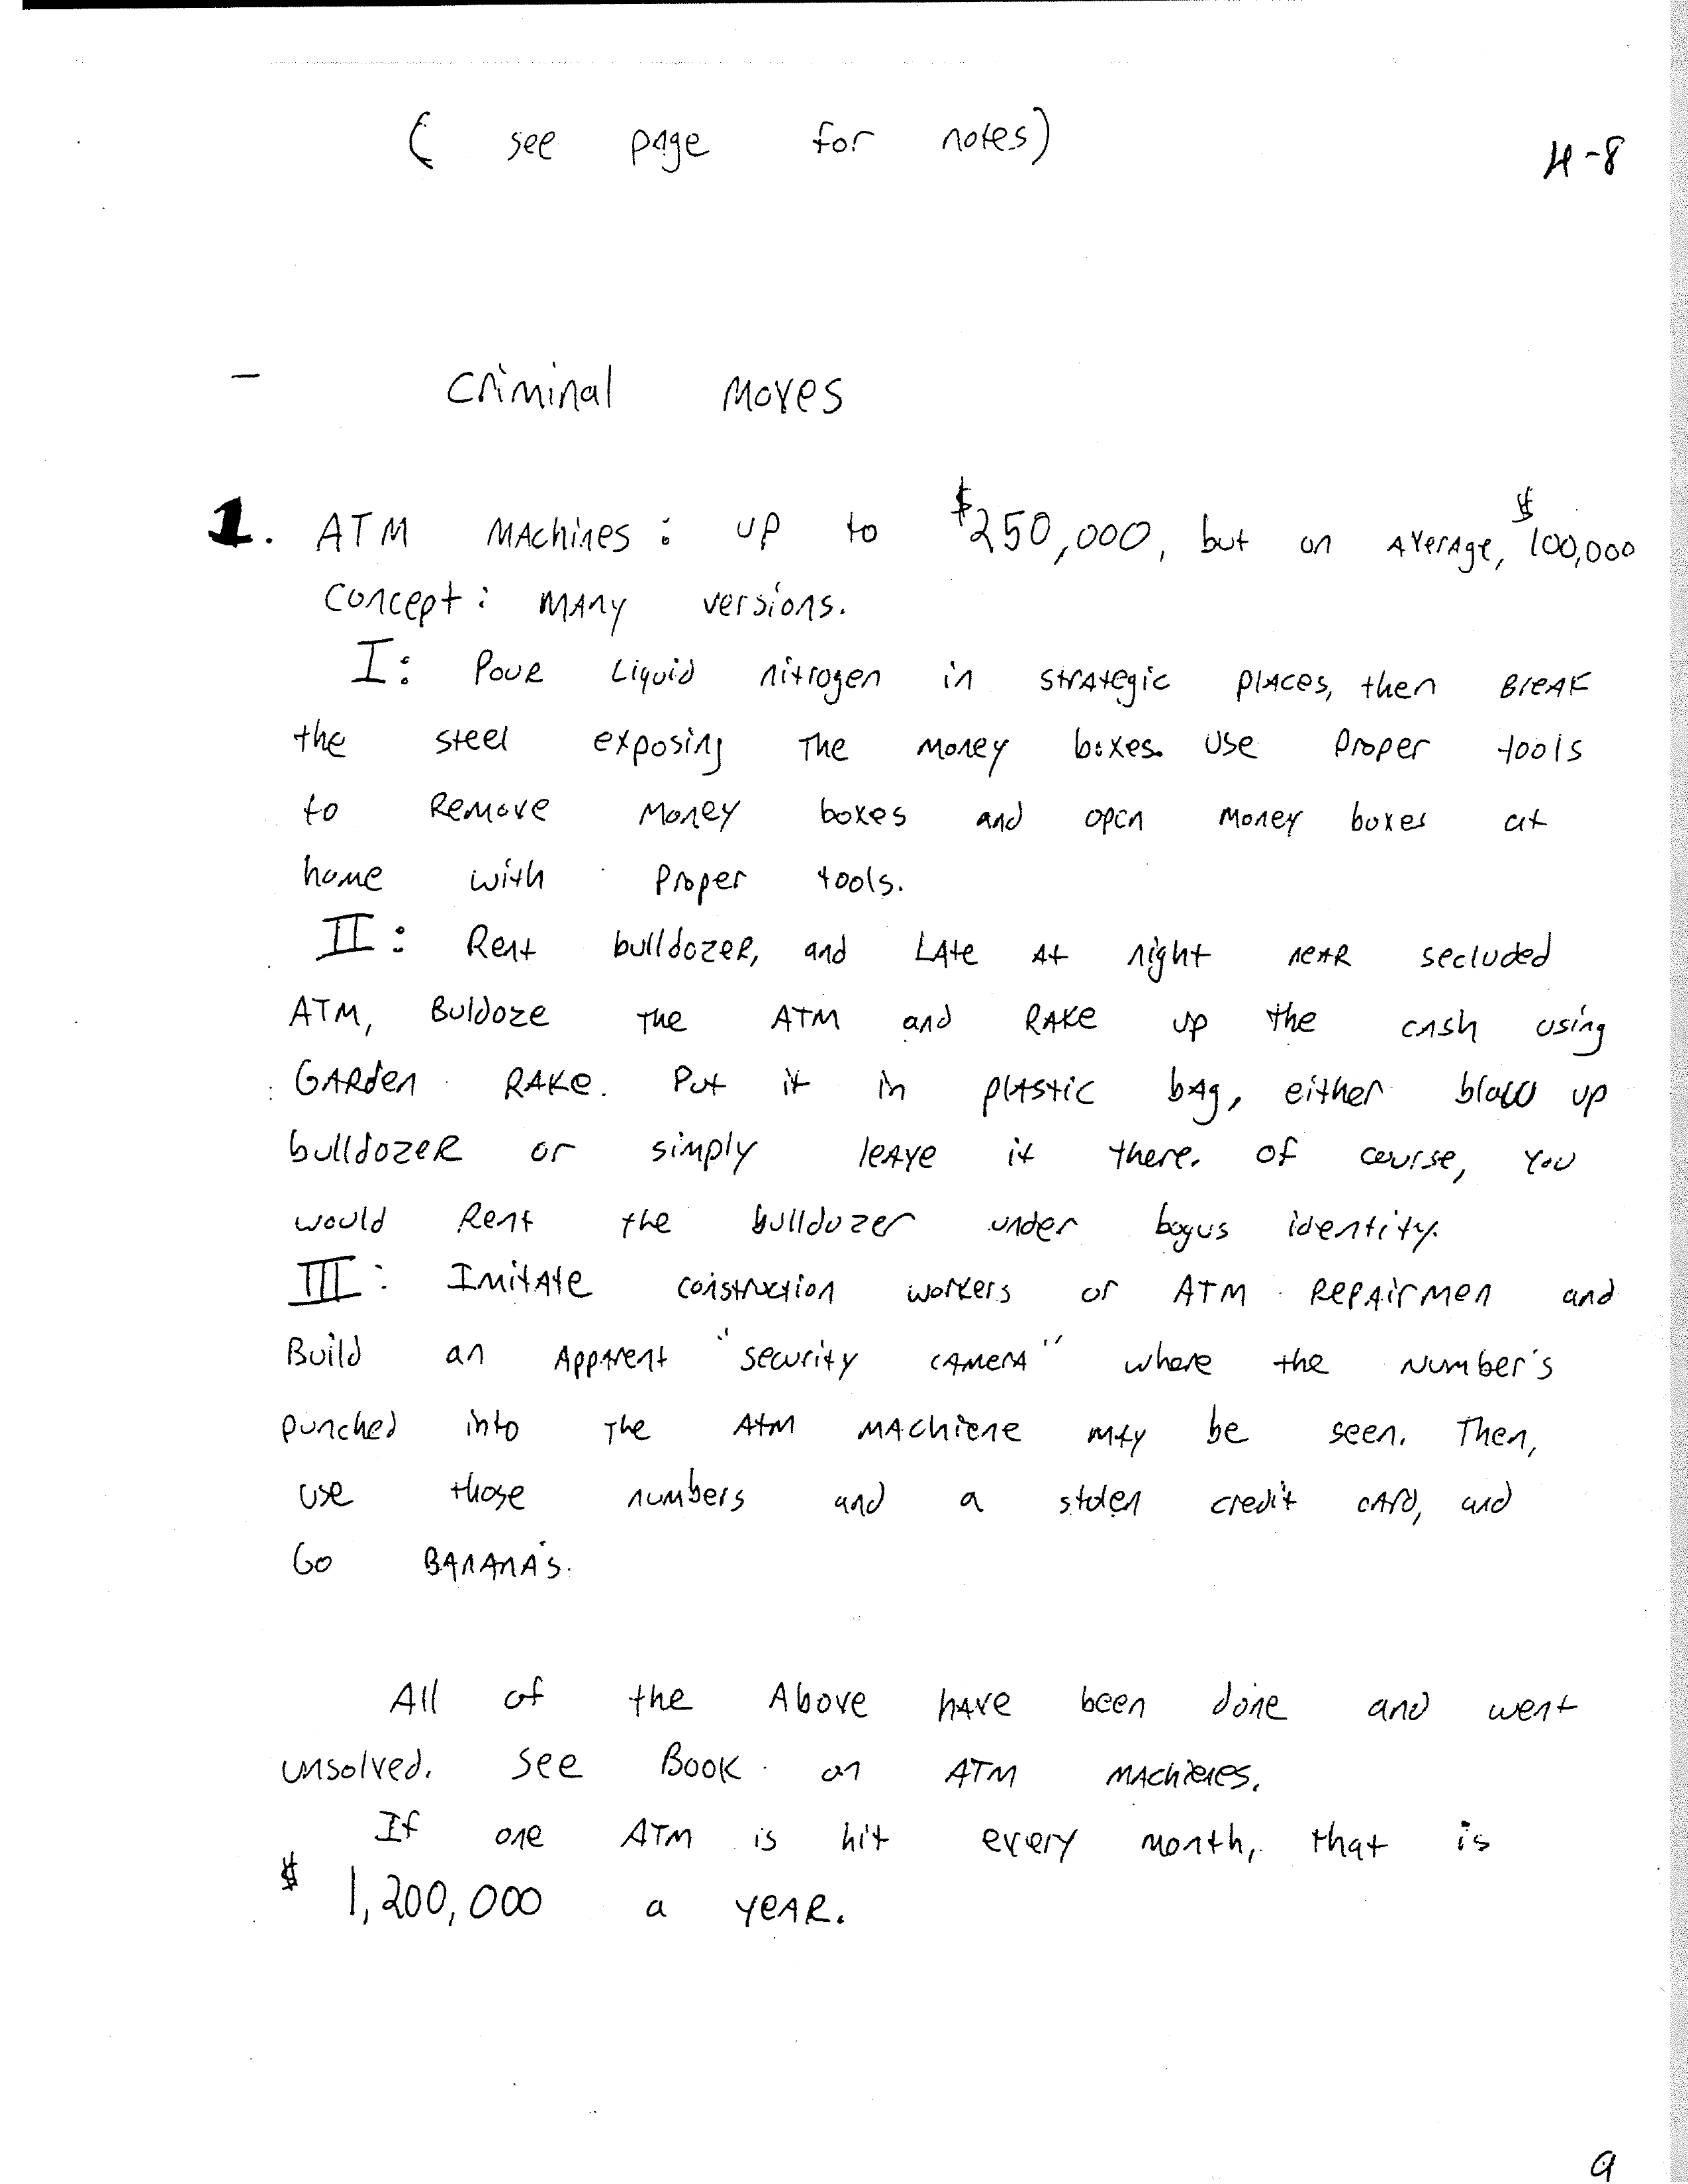 ( see page for notes)
H-8
- Criminal Moves
1. ATM MAchines: up to $250,000, but on AverAge, $100,000
Concept: MANy versions.
I: Pour Liquid nitrogen in strAtegic plAces, then BreAK
the steel exposing The Money boxes. Use proper tools
to Remove Money boxes and open Money boxes at
home with proper tools.
II: Rent bulldozeR, and LAte At night neAR secluded
ATM, Buldoze The ATM and RAKe up the cAsh using
GARden RAKe. Put it in plAstic bAg, either blow up
bulldozeR or simply leAve it there. Of course, you
would Rent the bulldozer under bogus identity.
III: ImitAte construction workers or ATM RepAirmen and
Build an AppArent "security cAmerA" where the Number's
punched into The AtM MAchiene mAy be seen. Then,
use those numbers and a stolen credit cArd, and
Go BANANA's.
All of the Above hAve been done and went
unsolved. See Book on ATM MAchienes.
If one ATM is hit every month, that is
$ 1,200,000 a yeAR.
9